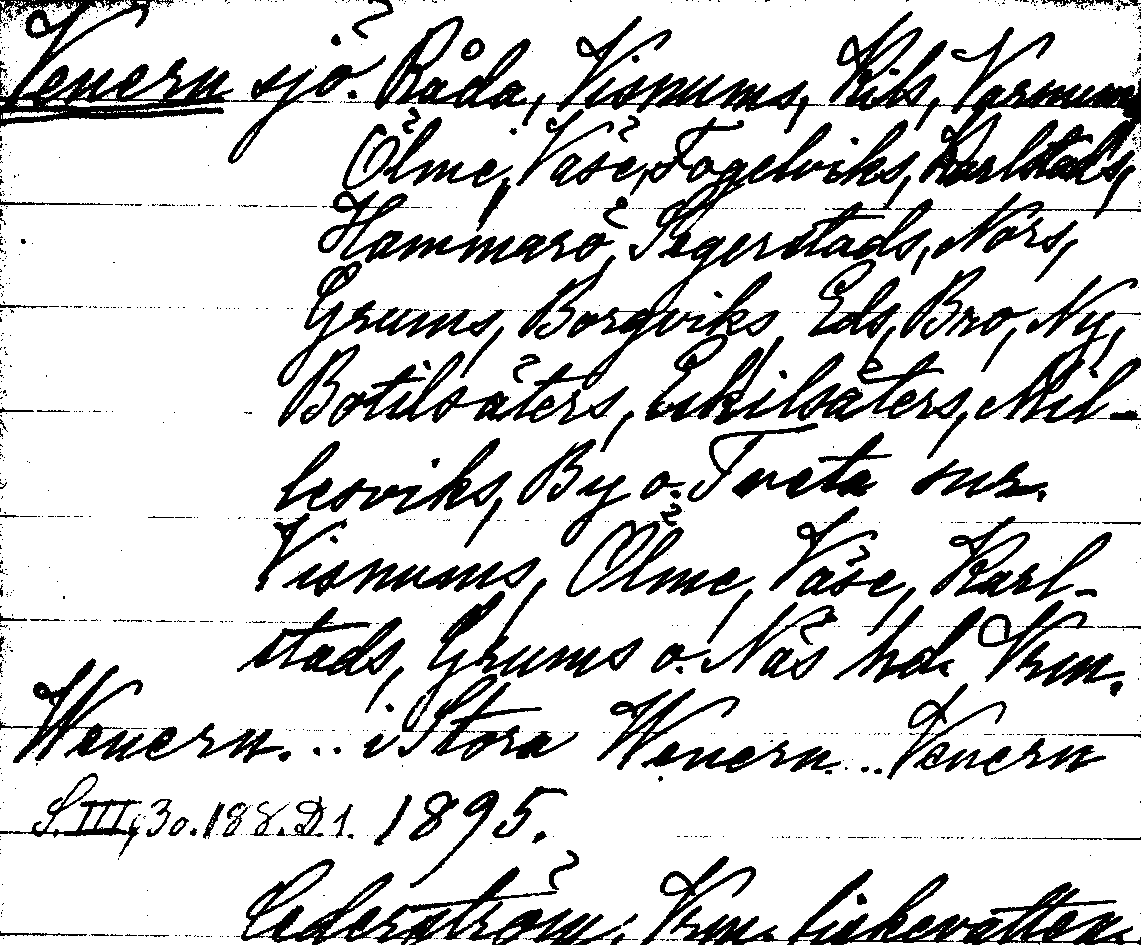 Venern sjö. Råda, Visnums, Kils, Varnums
Ölme, Väse, Fogelviks, Karlstads,
Hammarö, Segerstads, Nors,
Grums, Borgviks, Eds, Bro, Ny,
Botilsäters, Eskilsäters, Mil-
lesviks, By o. Tveta snr.
Visnums, Ölme, Väse, Karl-
stads, Grums o. Näs hd. Vrm.
Wenern... i Stora Wenern... Venern
S. III, 3 o. 188. D 1. 1895.
Cederström, Vrm. fiskevatten